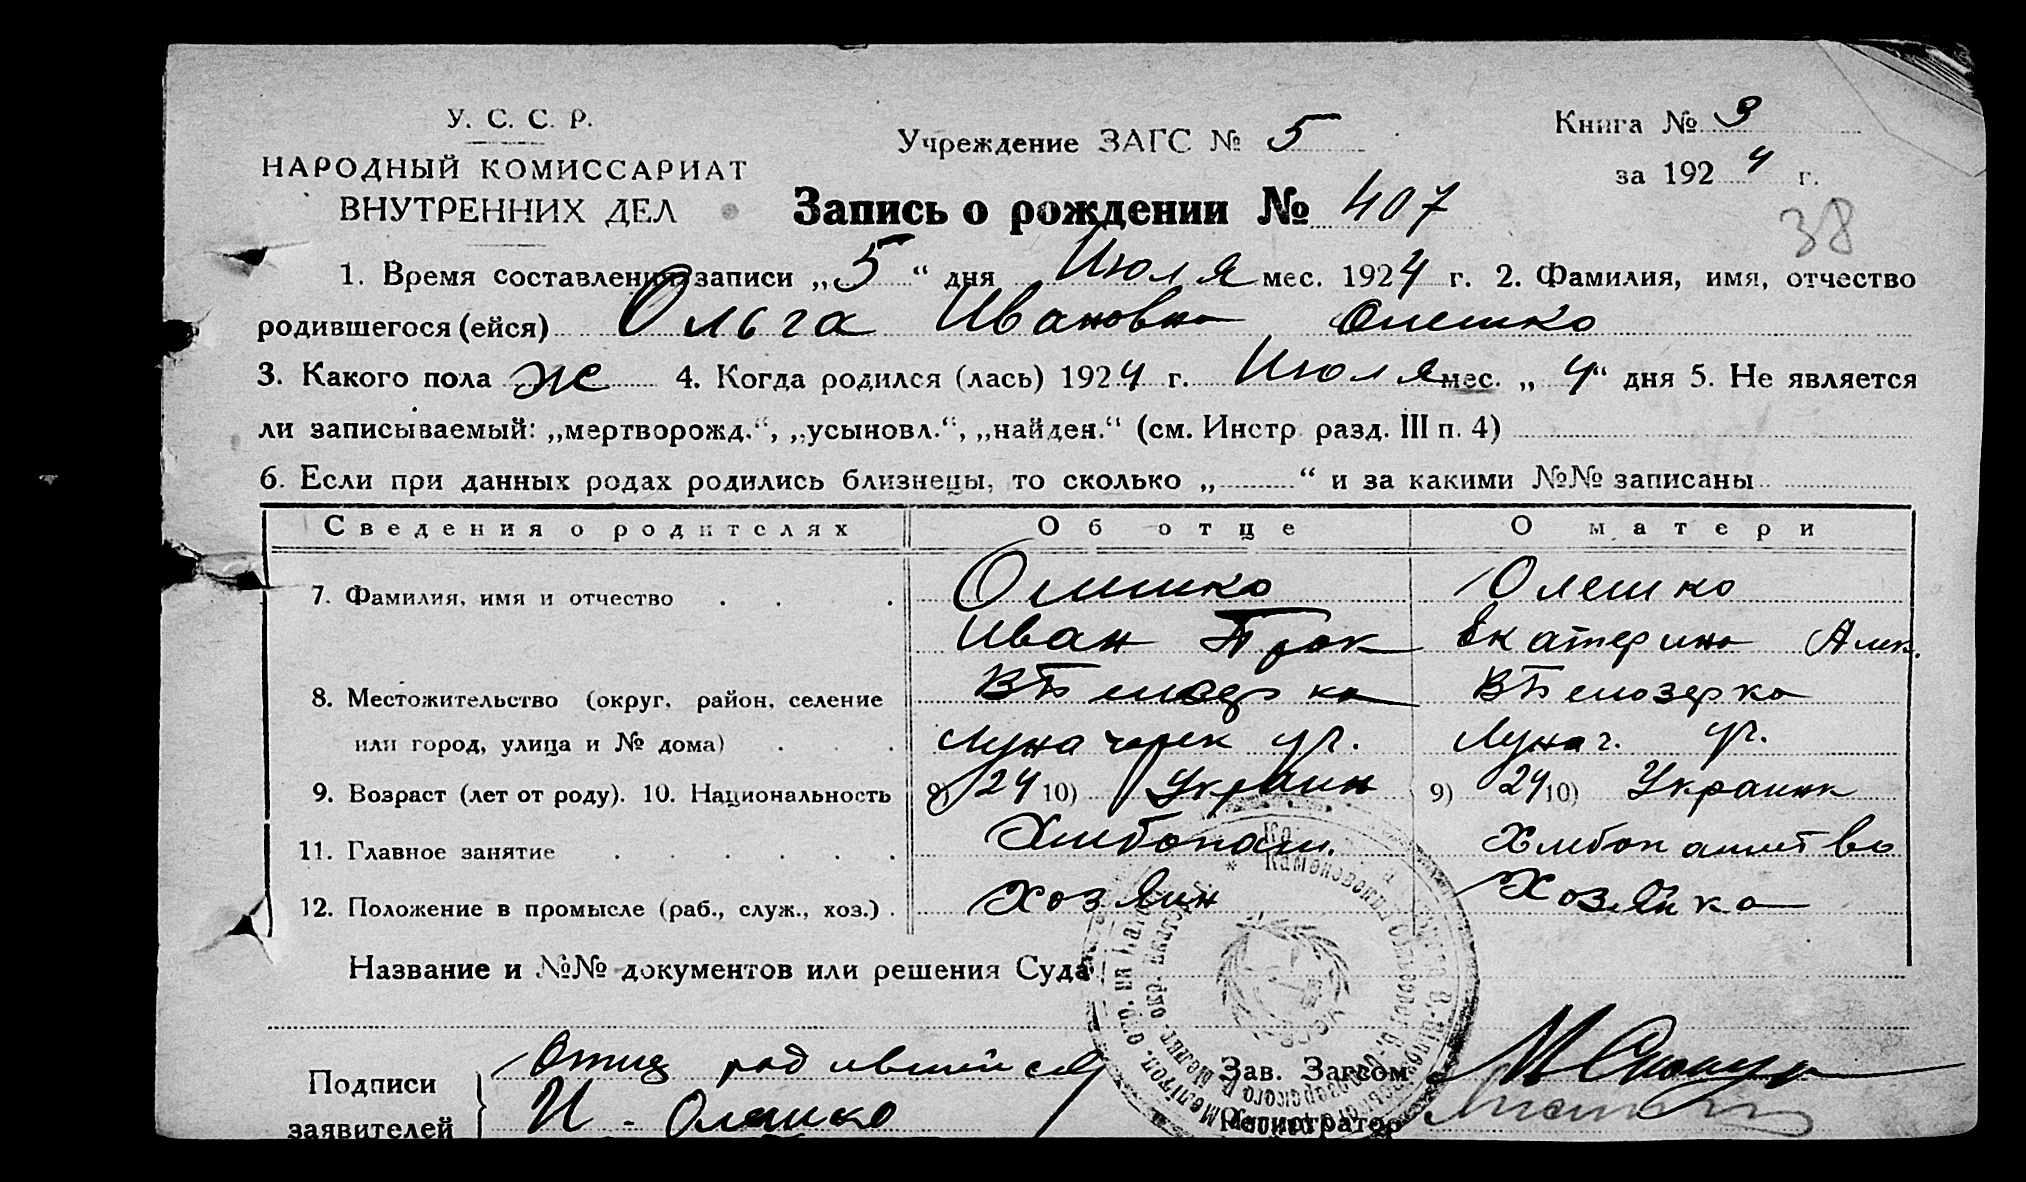 У. С. С. Р.
НАРОДНЫЙ КОМИССАРИАТ
ВНУТРЕННИХ ДЕЛ
Учреждение ЗАГС № 5
Книга № 3
за 1924 г.
38
Запись о рождении № 407
1. Время составления записи „5“ дня Июля мес. 1924 г. 2. Фамилия, имя, отчество
родившегося (ейся) Ольга Ивановна Олешко
3. Какого пола же 4. Когда родился (лась) 1924 г. Июля мес. „4“ дня 5. Не является
ли записываемый: „мертворожд.“, „усыновл.“, „найден.“ (см. Инстр. разд. III п. 4)
6. Если при данных родах родились близнецы, то сколько „ “ и за какими №№ записаны
Сведения о родителях Об отце О матери
7. Фамилия, имя и отчество Олешко Олешко
Иван Прок Екатерина Алек.
8. Местожительство (округ, район, селение ВБелозерка ВБелозерка
или город, улица и № дома) Луначарск ул. Лунач. ул.
9. Возраст (лет от роду). 10. Национальность 9) 24 10) Украин 9) 24 10) Украинк
11. Главное занятие Хлибопаш. Хлибопашетво
12. Положение в промысле (раб., служ., хоз.) Хозяин Хозяйка
Название и №№ документов или решения Суда
Подписи
заявителей
Отец родившейся
И. Олешко
Зав. Загсом
Регистратор